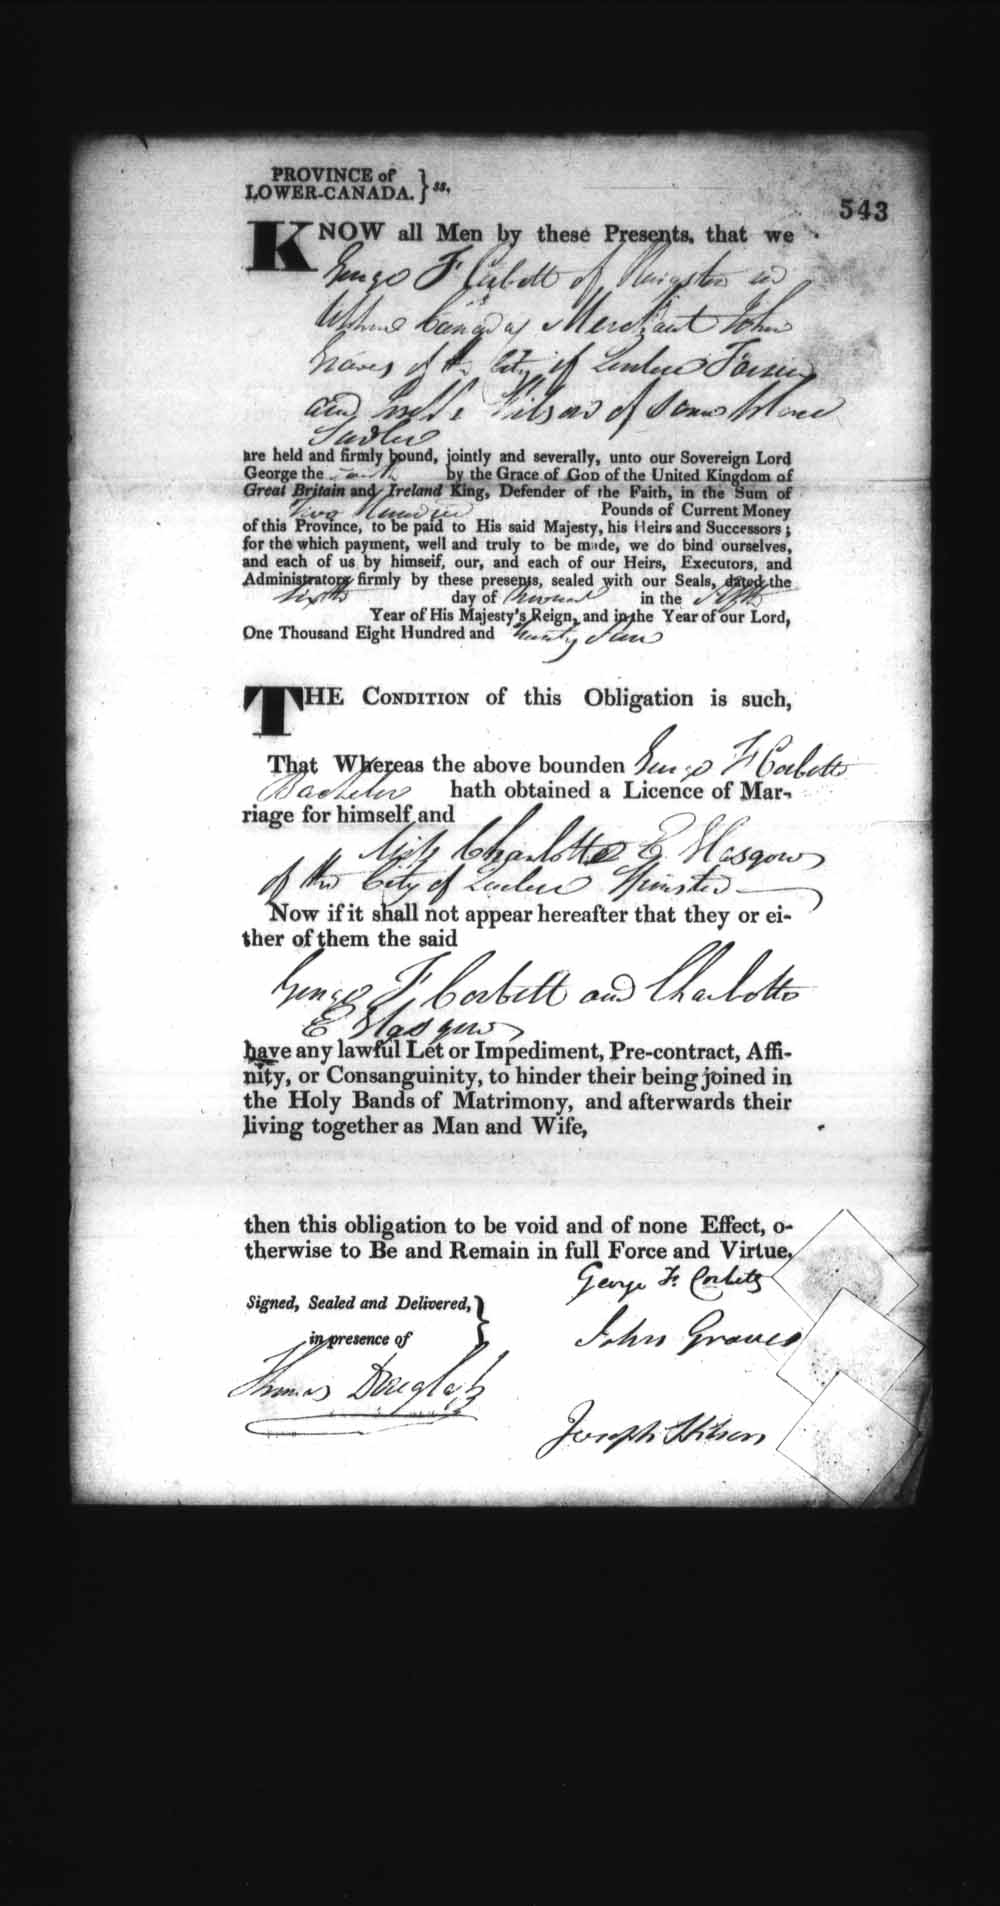 PROVINCE of
LOWER-CANADA. } ss.
543
KNOW all Men by these Presents, that we
George F Corbett of Kingston in
Upper Canada Merchant John
Graves of the City of Quebec
and Joseph Hilson of same place
Sadler
are held and firmly bound, jointly and severally, unto our Sovereign Lord
George the Fourth by the Grace of GOD of the United Kingdom of
Great Britain and Ireland King, Defender of the Faith, in the Sum of
Two Hundred Pounds of Current Money
of this Province, to be paid to His said Majesty, his Heirs and Successors;
for the which payment, well and truly to be made, we do bind ourselves,
and each of us by himself, our, and each of our Heirs, Executors, and
Administrators firmly by these presents, sealed with our Seals, dated the
sixth day of in the Fifth
Year of His Majesty's Reign, and in the Year of our Lord,
One Thousand Eight Hundred and Twenty Four
THE CONDITION of this Obligation is such,
That Whereas the above bounden George F Corbett
Bachelor hath obtained a Licence of Mar-
riage for himself and
Miss Charlotte E Glasgow
of the City of Quebec Spinster
Now if it shall not appear hereafter that they or ei-
ther of them the said
George F Corbett and Charlotte
E Glasgow
have any lawful Let or Impediment, Pre-contract, Affi-
nity, or Consanguinity, to hinder their being joined in
the Holy Bands of Matrimony, and afterwards their
living together as Man and Wife,
then this obligation to be void and of none Effect, o-
therwise to Be and Remain in full Force and Virtue.
George F. Corbett
Signed, Sealed and Delivered, }
in presence of
John Graves
Thomas Douglass
Joseph Hilson